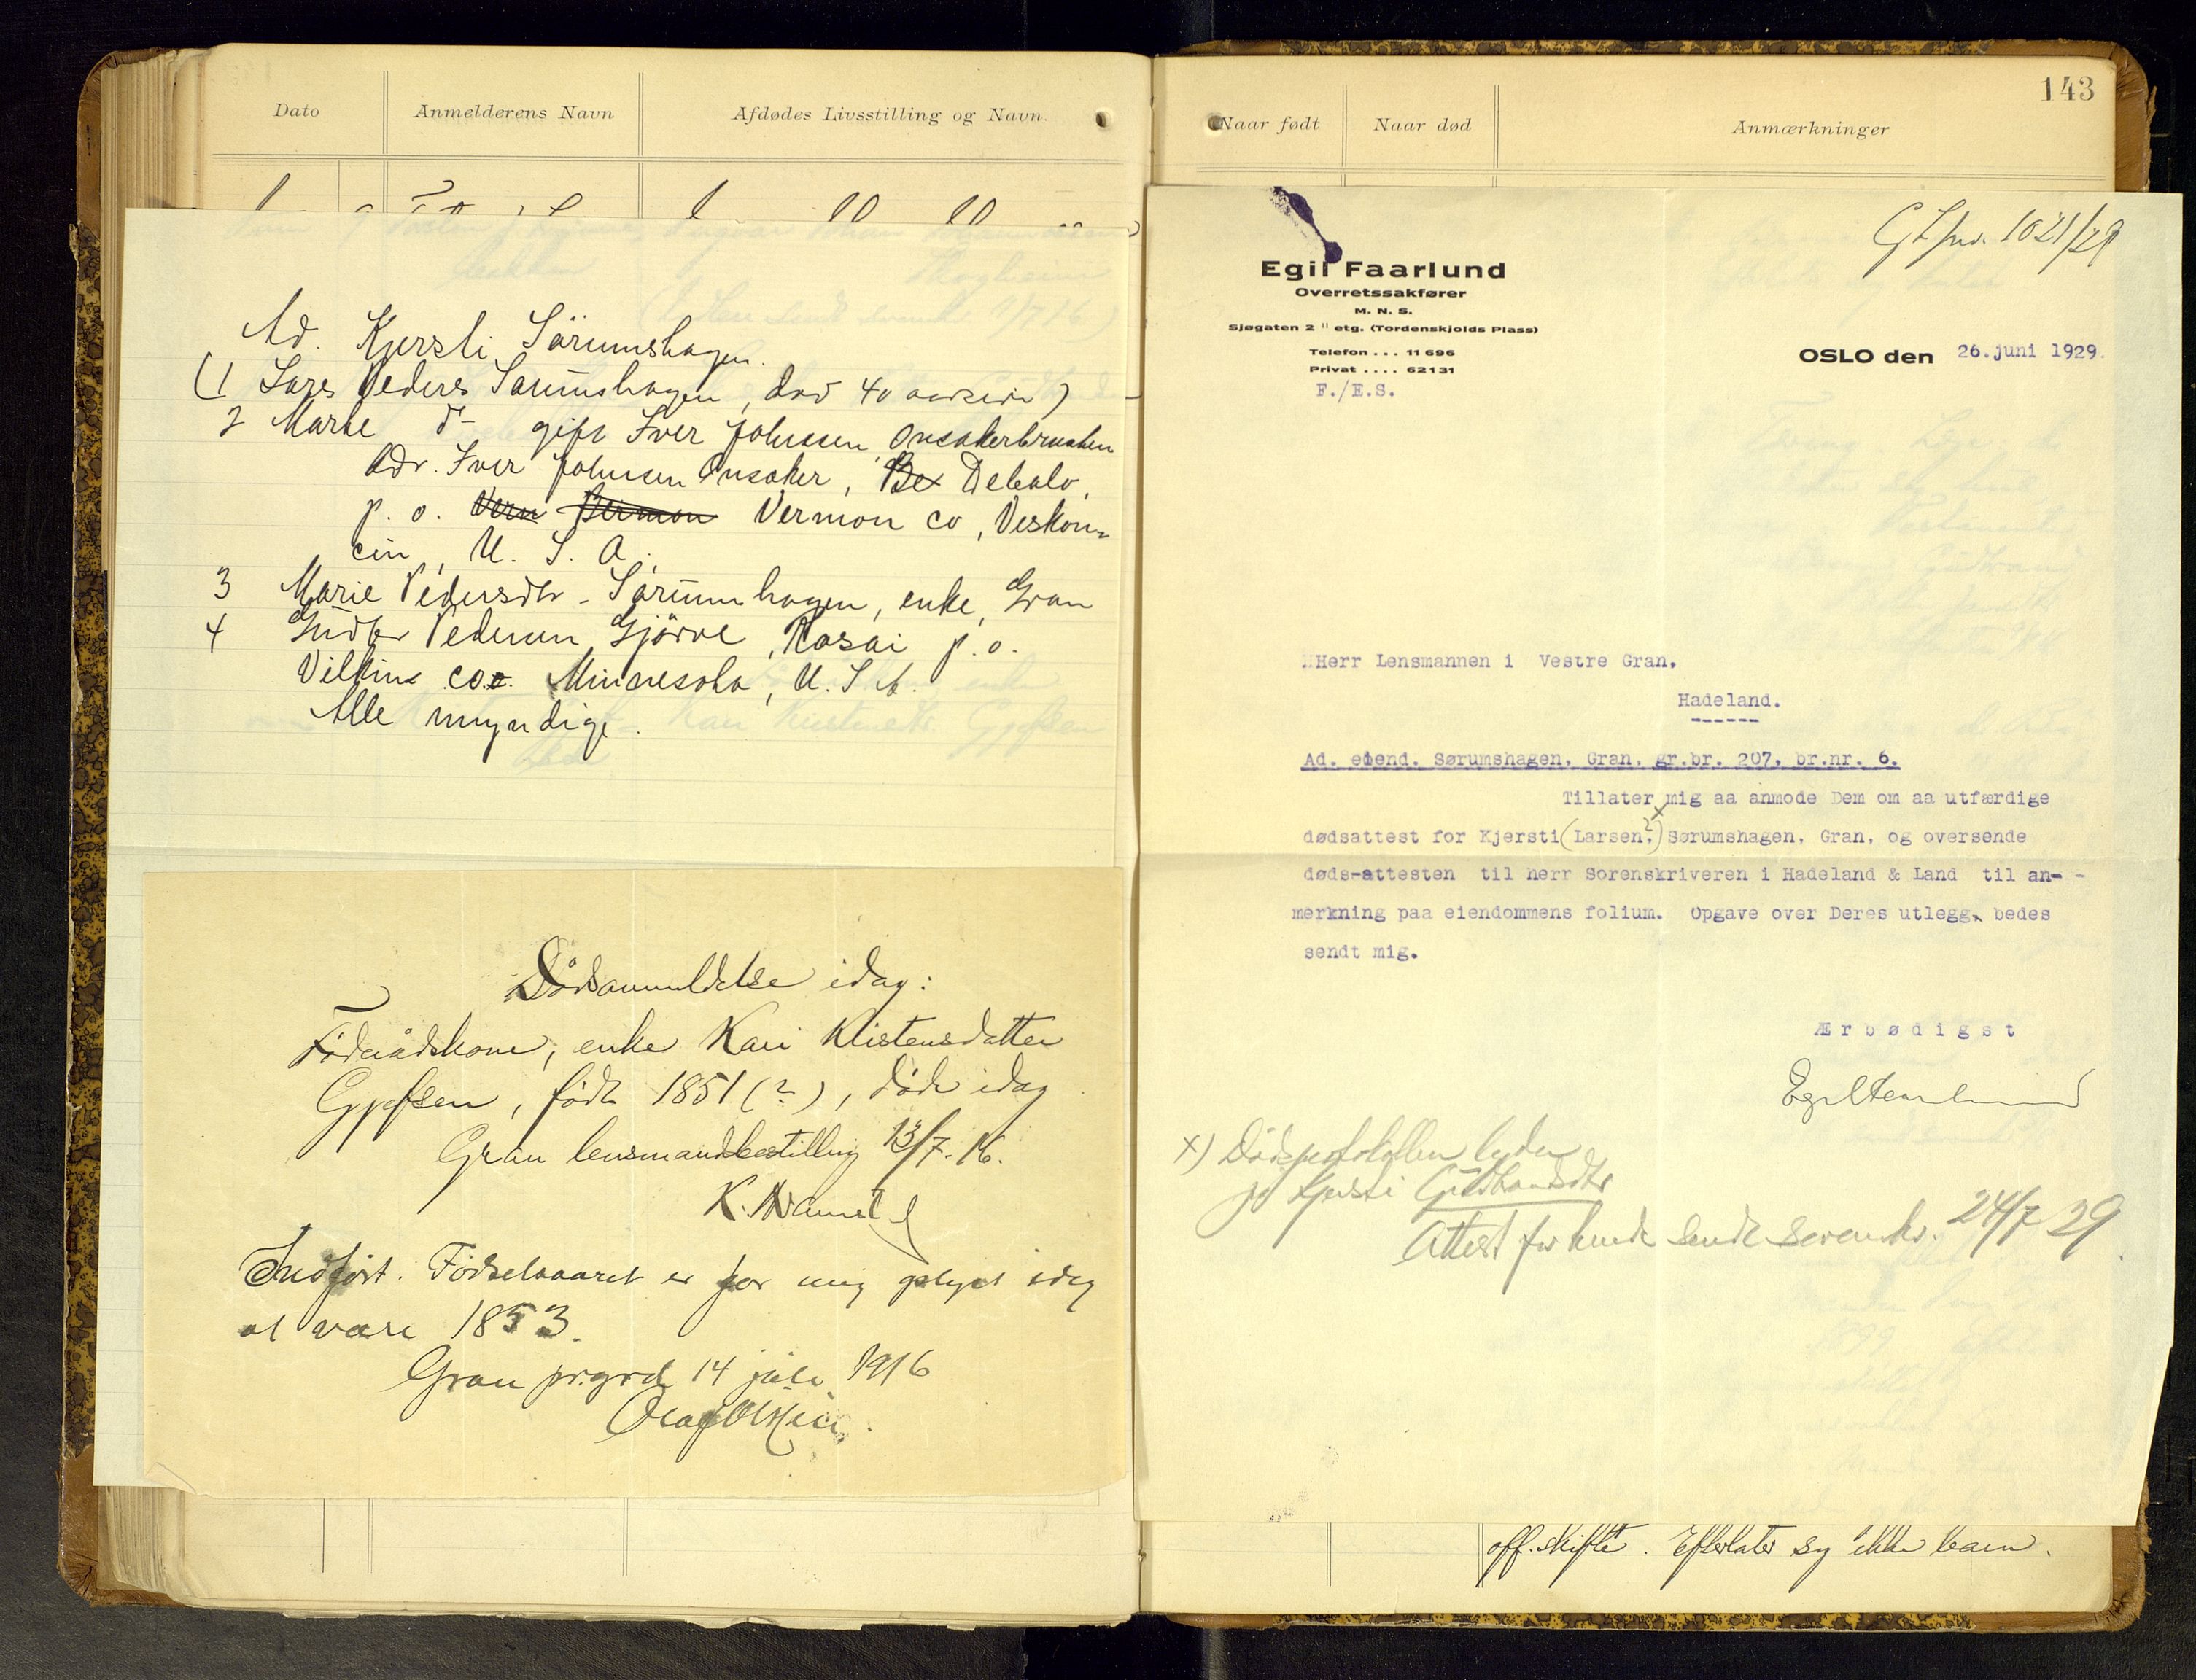 Dato
Anmelderens Navn
Afdødes Livsstilling og Navn.
Ad. Kjersti Sörumshagen.
(1 Lars Peders Sarumshagen, død 40 aar siden)
2 Marte d- gift Iver Johnsen, Onsakerbraaten
Adr. Iver Johnsen Onsaker, Be Debalo,
p. o. Vern Bermon Vermon co, Veskon-
cin, U. S. A.
3 Marie Pedersdtr - Sörumhagen, enke, Gran
4 Gudbr Pedersen Gjörve, Rasai p. o.
Vilkins co. Minnesota, U. S. A.
Alle myndige.
Dödsanmeldelse idag:
Föderådskone, enke Kari Kristensdatter
Gjefsen, födt 1851 (?), döde idag
Gran lensmandbestilling 13/7-16.
Indfört. Födselsaaret er for mig oplyst idag
at være 1853.
Gran prgrd 14 juli 1916
143
Naar født
Naar død
Anmærkninger
1021/29
Egil Faarlund
Overretssakfører
M. N. S.
Sjøgaten 2 II etg. (Tordenskjolds Plass)
Telefon . . . 11 696
Privat . . . . 62131
F./E.S.
OSLO den 26.juni 1929.
Herr Lensmannen i Vestre Gran.
Hadeland.
------
Ad. eiend. Sørumshagen, Gran, gr.br. 207, br.nr. 6.
Tillater mig aa anmode Dem om aa utfærdige
x
dødsattest for Kjersti (Larsen,?) Sørumshagen, Gran, og oversende
døds-attesten til herr Sorenskriveren i Hadeland & Land til an- -
merkning paa eiendommens folium. Opgave over Deres utlegg bedes
sendt mig.
Ærbødigst
Egil Faarlund
x) Dödsprotokollen lyder
på Kjersti Gudbrandsdtr
Attest for hende sendt sorenskr. 24/7 29.
off. skifte. Efterlater sig ikke barn.